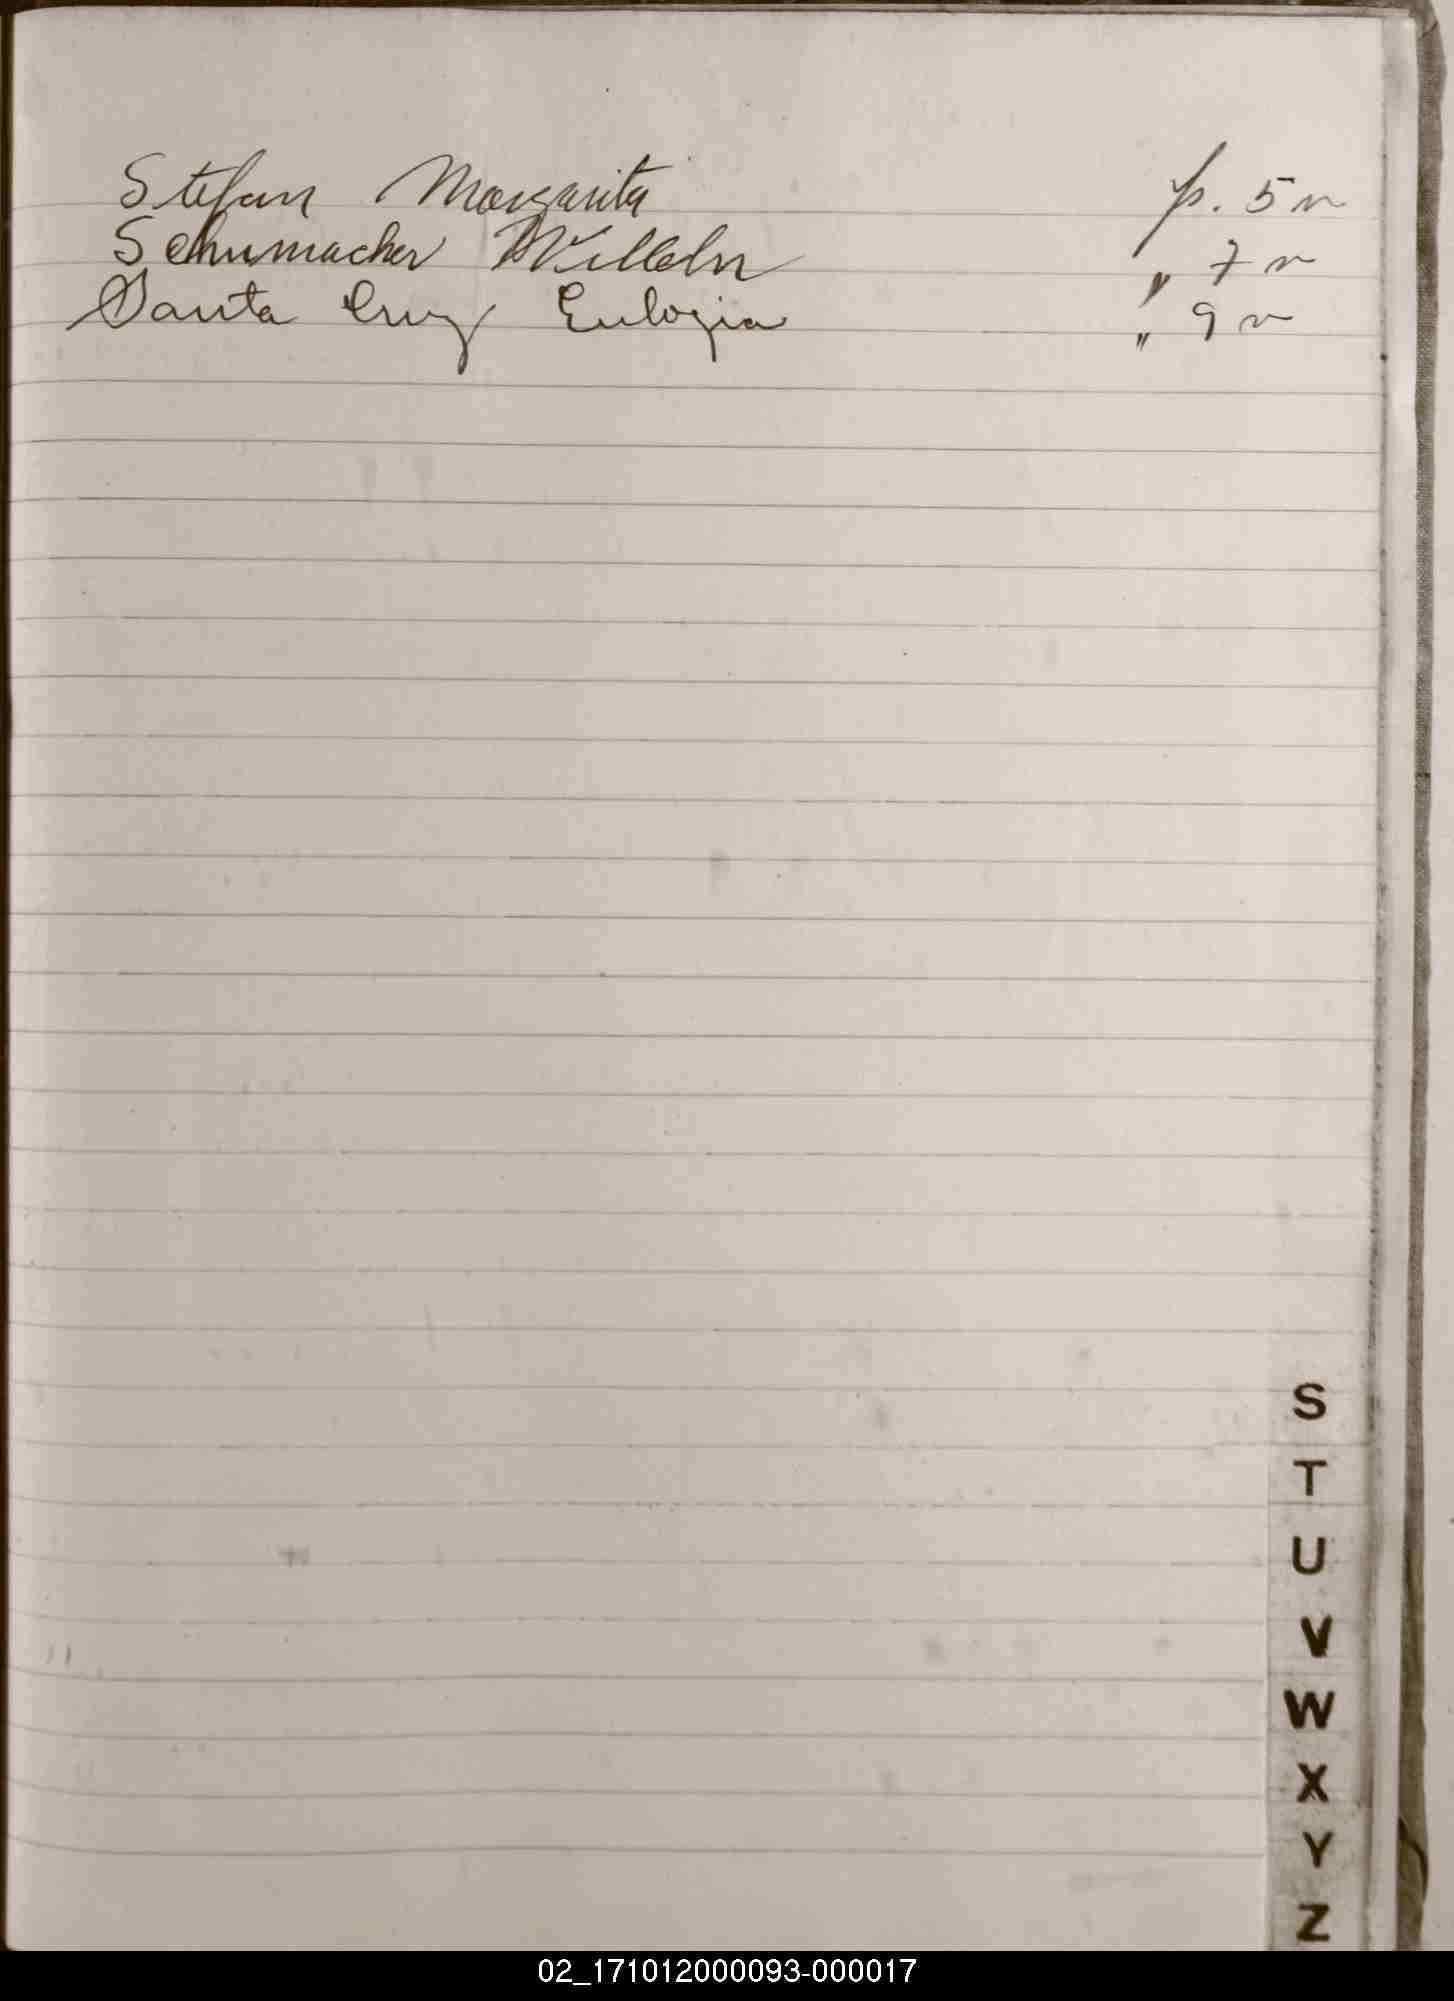 Stefan Margarita p. 5 v
Schumacher Willeln „ 7 v
Santa Cruz Eulogia „ 9 v
S
T
U
V
W
X
Y
Z
02_171012000093-000017